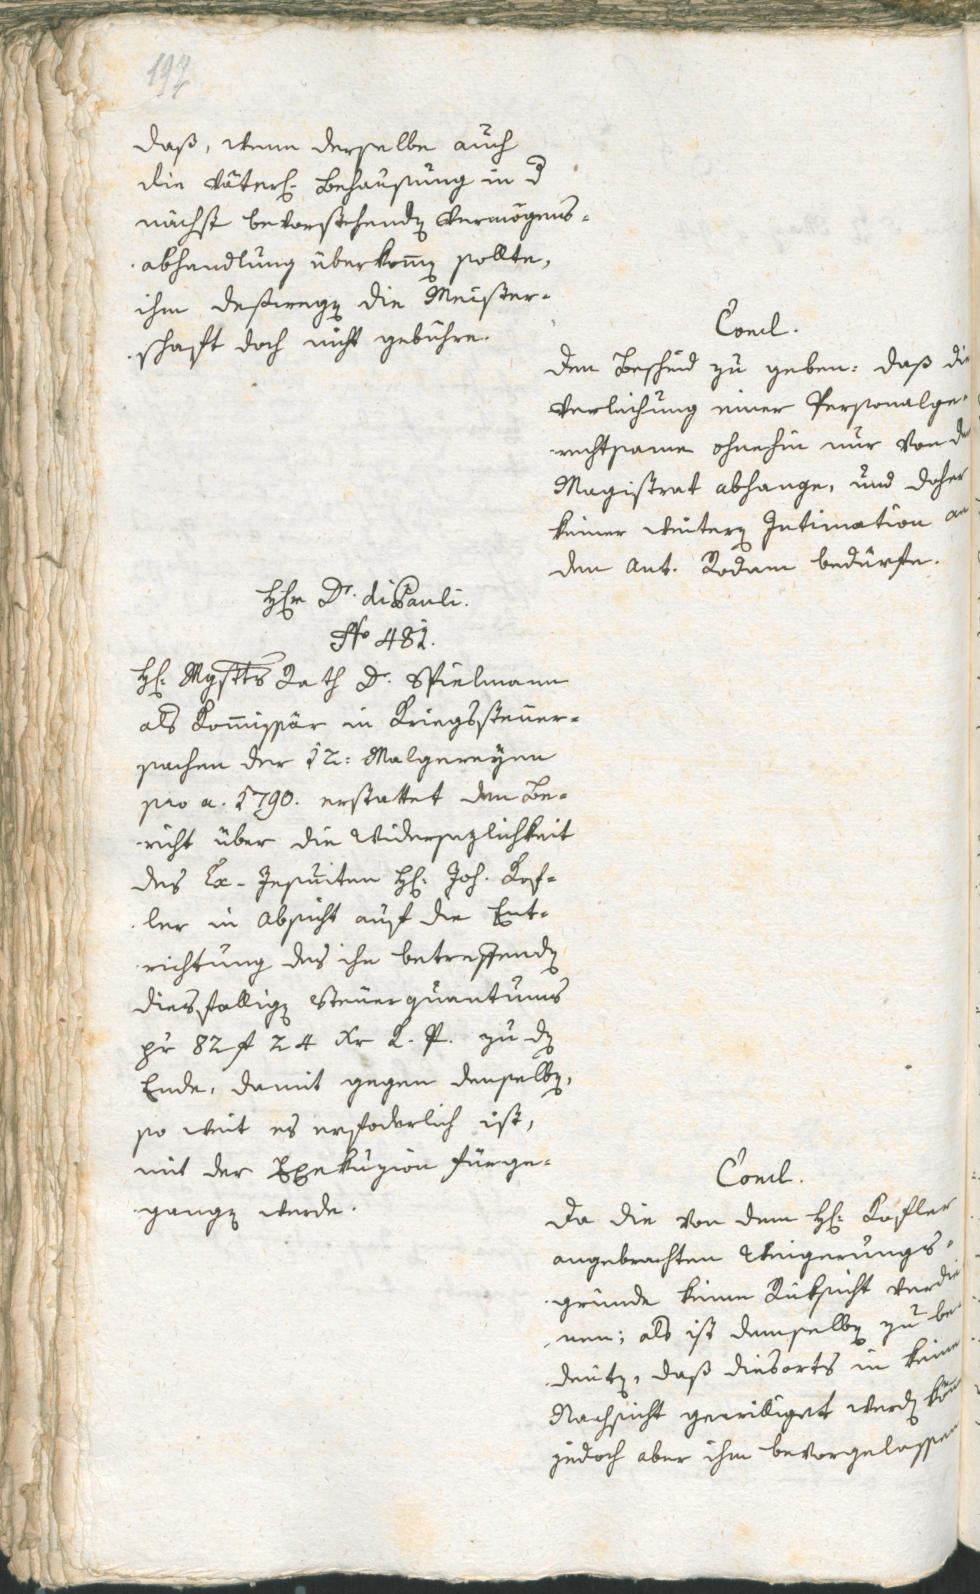 197
daß, wenn derselbe auch
die väterl: Behausung in d
nächst bevorstehend vermögens-
abhandlung überkom̄ sollte,
ihm deßweg die Meister-
schaft doch nicht gebühre.
Concl.
dem Bescheid zu geben: daß die
Verleihung einer Personalge-
rechtsame ohnehin nur von dem
Magistrat abhange, und daher
keiner weiter Intimation an
den Ant. Rodam bedürfe.
Hhr Dr. di Pauli.
No 481.
H: Mgstts Rath D. Spielmann
als Kom̄issär in Kriegssteuer-
sachen der 12: Malgereyen
pro a. 1790. erstattet den Be-
richt über die Widersezlichkeit
des Ex-Jesuiten H: Joh. Kof-
ler in Absicht auf die Ent-
richtung des ihn betreffend
diesfallig Steuerquantums
pr 82 f 24 xr zu d
Ende, damit gegen denselb,
so weit es erfoderlich ist,
mit der Exekuzion fürge-
gang werde.
Concl.
Da die von dem H: Kofler
angebrachten Weigerungs-
gründe keine Rüksicht verdie
nen; als ist demselb zu be-
deut, daß diesorts in keine
Nachsicht gewilliget werd kön
jedoch aber ihm bevorgelassen